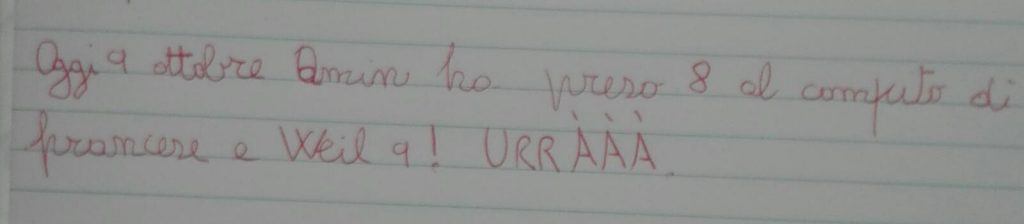 Oggi 9 ottobre Amin ho preso 8 al compito di
francese e Weil 9! URRÀÀÀ.